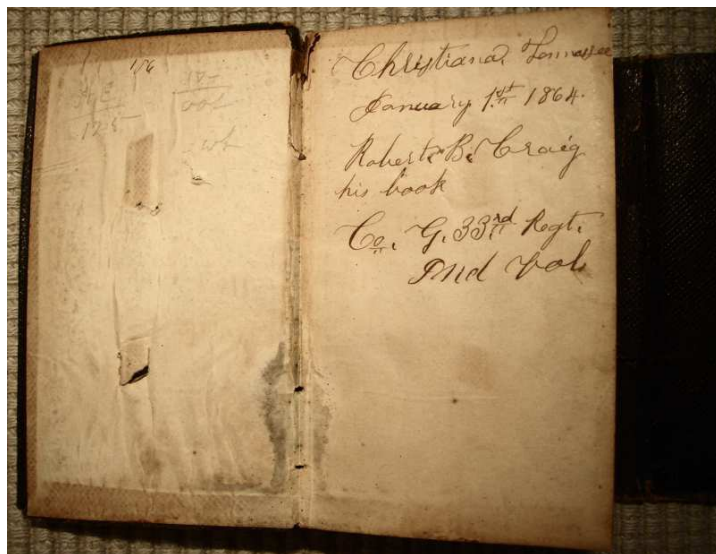 186
Christiana, Tennessee
January 1st 1864.
Robert B. Craig
his book
Co. G. 33rd Regt.
Ind Vol